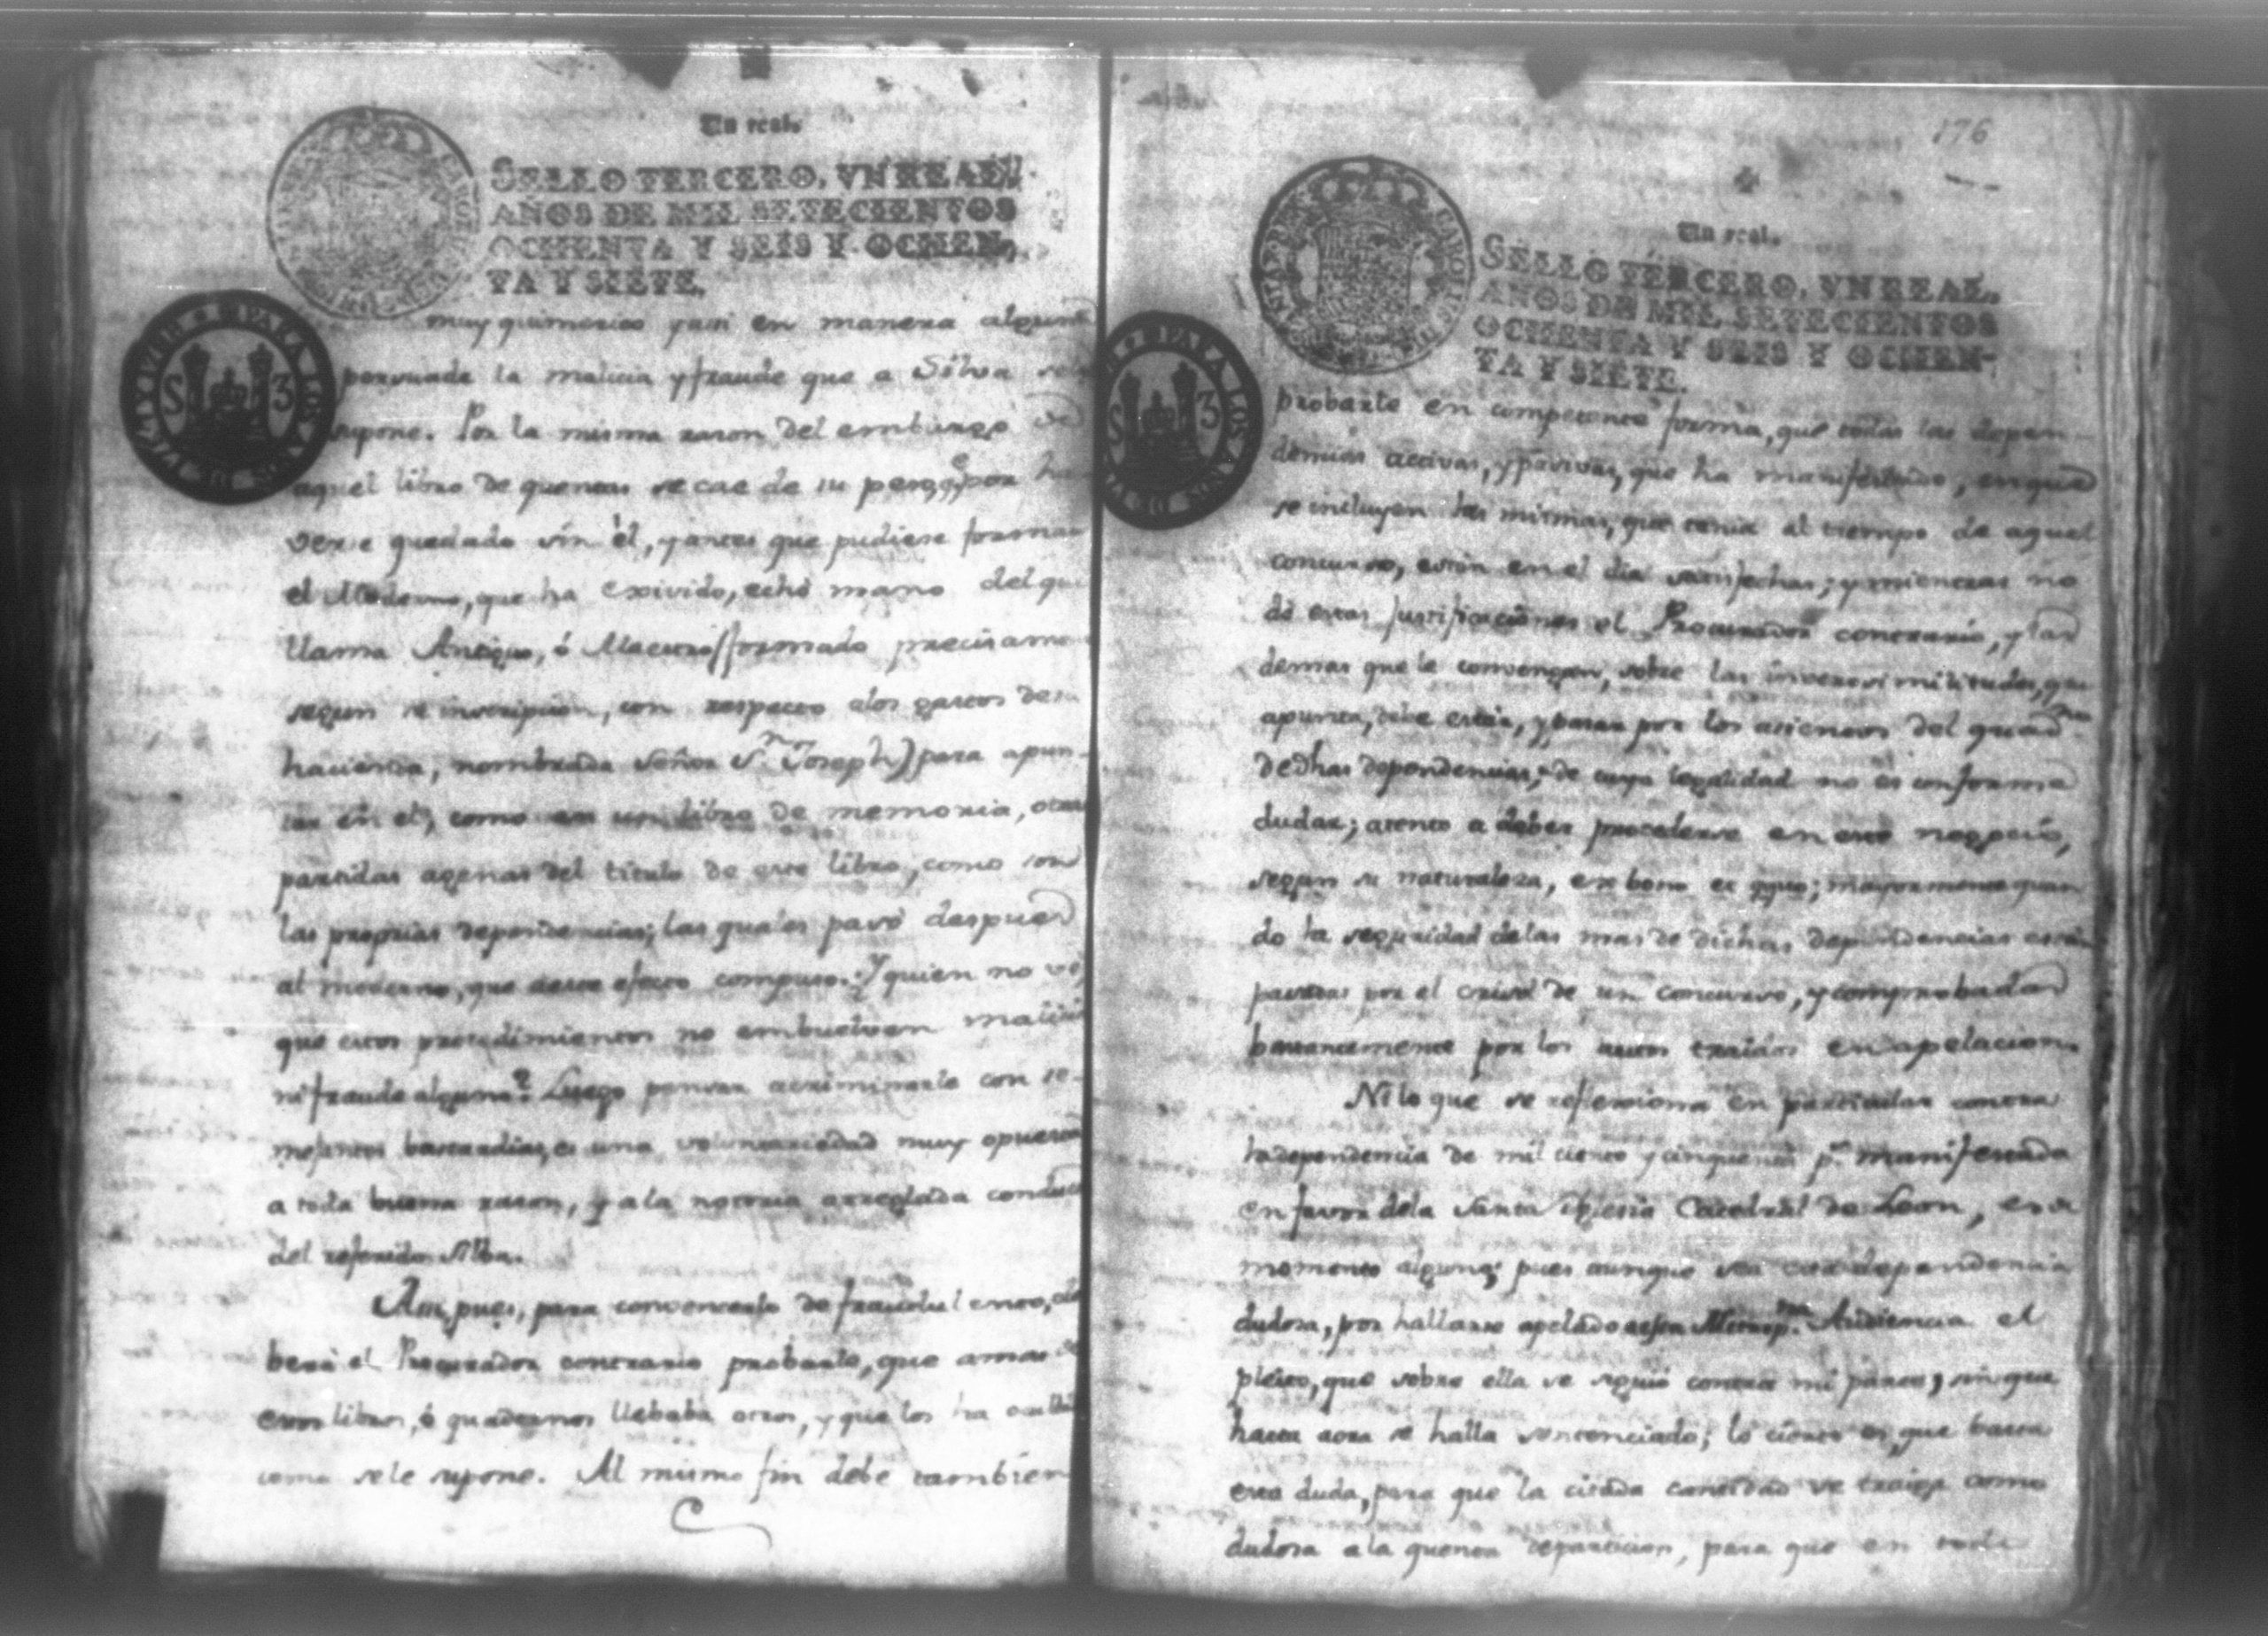 Un real.
SELLO TERCERO, VN REAL,
AÑOS DE MIL SETECIENTOS
OCHENTA Y SEIS Y OCHEN-
TA Y SIETE.
muy quimerico y asi en manera alguna
persuade la malicia y fraude que a Silva se le
supone. Por la misma razon del embargo de
aquel libro de quentas se cae de su peso, q.e por ha
verse quedado sin el, y antes que pudiese formar
el Moderno, que ha exivido, echó mano del qu
llama Antiguo, ó Maestro (formado precisame
segun se inscripcion, con respecto alos gastos de
hacienda, nombrada Señor S.n Joseph) para apun-
tar en el, como en un libro de memoria, otras
partidas agenas del titulo de este libro, como son
las proprias dependencias; las quales pasó despues
al moderno, que a este efecto compuso. Y quien no vé,
que estos procedimientos no embuelven malicia
ni fraude alguna? Luego pensar acriminarle con se-
mejantes bastardias, es una voluntariedad muy opuesta
a toda buena razon, y a la notoria arreglada conducta
del referido Silva.
Asi, pues, para convencerlo de fraudulento, de
berá el Procurador contrario probarle, que a mas de
esos libros, ó quadernos llebaba otros, y que los ha
como se le supone. Al mismo fin debe tambien
176
Un real.
SELLO TERCERO, VN REAL,
AÑOS DE MIL SETECIENTOS
OCHENTA Y SEIS Y OCHEN-
TA Y SIETE.
probarle en competente forma, que todas las depen-
dencias activas, y pasivas, que ha manifestado, en que
se incluyen las mismas, que tenia al tiempo de aquel
concurso, están en el dia satisfechas; y mientras no
dé estas justificaciones el Procurador contrario, y las
demas que le convengan, sobre las inverosimilitudes, que
apunta, debe estar, y pasar por los asientos del quad.no
de dhas dependencias, de cuya legalidad no es conforme
dudar; atento a deber procederse en este negocio,
segun su naturaleza, ex bono et equo; mayormente quan
do la seguridad de las mas de dichas dependencias están
pasadas por el crisol de un concurso, y comprobadas
bastantemente por los autos traidos en apelacion.
Ni lo que se reflexiona en particular contra
la dependencia de mil ciento y cinquenta p.s manifestada
en favor de la Santa Iglesia Catedral de Leon, es de
momento alguno; pues aunque sea esta dependencia
dudosa, por hallarse apelado a esta Metrop.na Audiencia el
pleito, que sobre ella se siguió contra mi parte, sin que
hasta aora se halla sentenciado; lo cierto es, que basta
esta duda, para que la citada cantidad se traiga como
dudosa a la quenta de particion, para que en todo